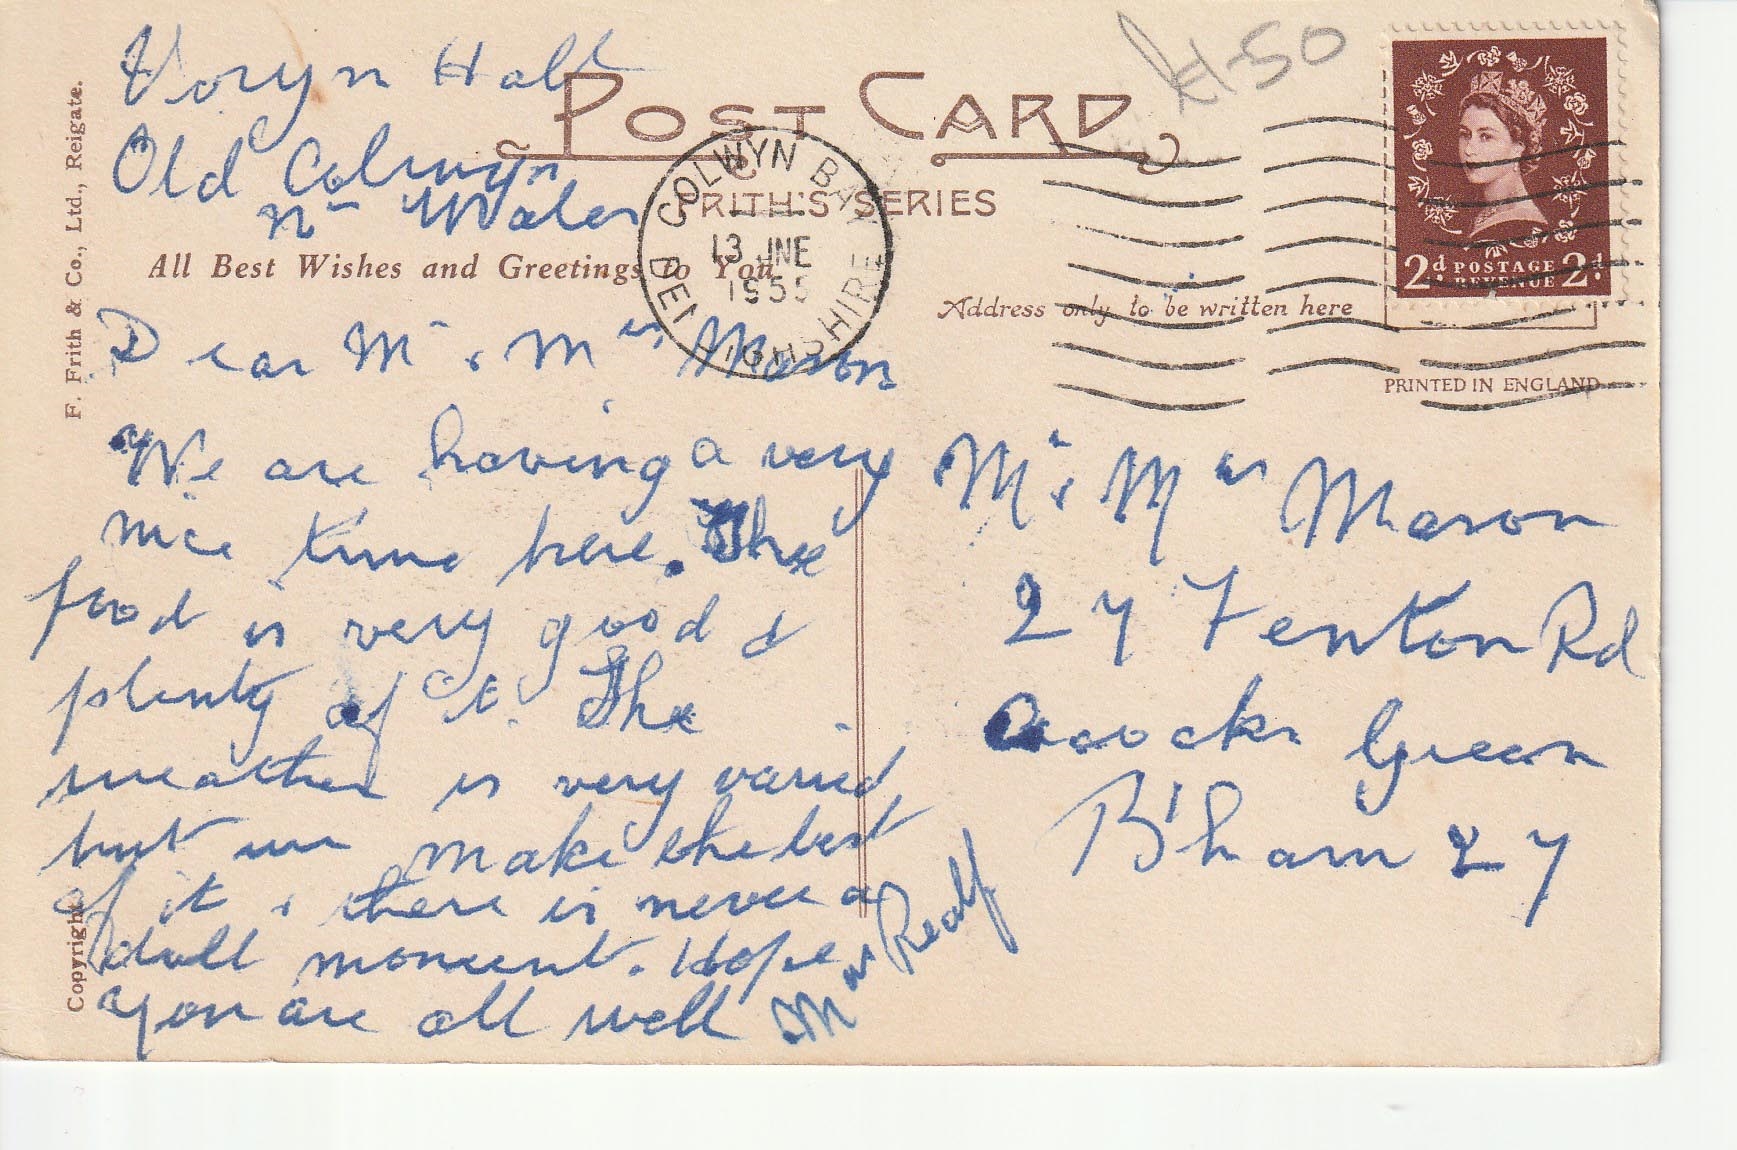 Voryn Hall
Old Colwyn
Nn Wales
POST CARD
£1-50
FRITH'S SERIES
All Best Wishes and Greetings to You
Address only to be written here
COLWYN BAY
13 JNE
1955
DENBIGHSHIRE
2d POSTAGE 2d
REVENUE
PRINTED IN ENGLAND
F. Frith & Co., Ltd., Reigate.
Copyright
Dear Mr & Mrs Mason
We are having a very
nice time here. The
food is very good &
plenty of it. The
weather is very varied
but we make the best
of it & there is never a
dull moment. Hope
you are all well
Mrs Realf
Mr & Mrs Mason
27 Fenton Rd
Acocks Green
B'ham 27